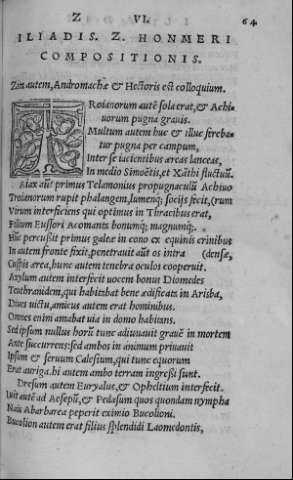 Z VI. 64
ILIADIS. Z. HONMERI
COMPOSITIONIS.
Zita autem, Andromachæ & Hectoris est colloquium.
TRoianorum autē sola erat, & Achi
uorum pugna grauis.
Multum autem huc & illuc fereba-
tur pugna per campum,
Inter se iacientibus æreas lanceas,
In medio Simoëtis, et Xāthi fluctuū.
Aiax aūt primus Telamonius propugnaculū Achiuo
Troianorum rupit phalangem, lumenq; socijs fecit, (rum
Virum interficiens qui optimus in Thracibus erat,
Filium Eussori Acomanta bonumq; magnumq;.
Hūc percussit primus galeæ in cono ex equinis crinibus
In autem fronte fixit, penetrauit aūt os intra (densæ,
Cuspis ærea, hunc autem tenebra oculos cooperuit.
Axylum autem interfecit uocem bonus Diomedes
Teuthranidem, qui habitabat bene ædificatæ in Arisba,
Diues uictu, amicus autem erat hominibus.
Omnes enim amabat uia in domo habitans.
Sed ipsum nullus horū tunc adiuuauit grauē in mortem
Ante succurrens: sed ambos in animum priuauit
Ipsum & seruum Calesium, qui tunc equorum
Erat auriga. hi autem ambo terram ingressi sunt.
Dresum autem Euryalus, & Opheltium interfecit.
Iuit autē ad Aesepū, & Pedasum quos quondam nympha
Nais Abarbarea peperit eximio Bucolioni.
Bucolion autem erat filius splendidi Laomedontis,